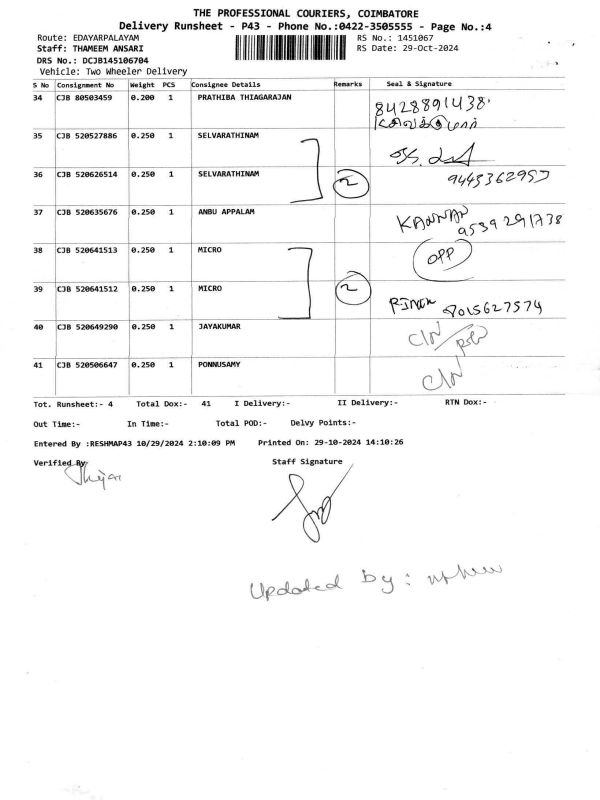 THE PROFESSIONAL COURIERS, COIMBATORE
Delivery Runsheet - P43 - Phone No.:0422-3505555 - Page No.:4
Route: EDAYARPALAYAM RS No.: 1451067
Staff: THAMEEM ANSARI RS Date: 29-Oct-2024
DRS No.: DCJB145106704
Vehicle: Two Wheeler Delivery
S No Consignment No Weight PCS Consignee Details Remarks Seal & Signature
34 CJB 80503459 0.200 1 PRATHIBA THIAGARAJAN 8428891438
35 CJB 520527886 0.250 1 SELVARATHINAM
36 CJB 520626514 0.250 1 SELVARATHINAM 2 9445362957
37 CJB 520635676 0.250 1 ANBU APPALAM KANNAN
9539291738
38 CJB 520641513 0.250 1 MICRO OPP
39 CJB 520641512 0.250 1 MICRO 2 8015627574
40 CJB 520649290 0.250 1 JAYAKUMAR C/N
41 CJB 520506647 0.250 1 PONNUSAMY C/N
Tot. Runsheet:- 4 Total Dox:- 41 I Delivery:- II Delivery:- RTN Dox:-
Out Time:- In Time:- Total POD:- Delvy Points:-
Entered By :RESHMAP43 10/29/2024 2:10:09 PM Printed On: 29-10-2024 14:10:26
Verified By: Staff Signature
Updated By: